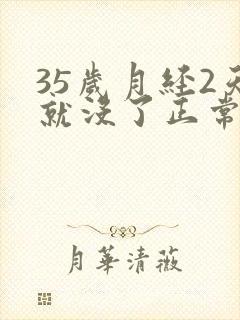 35歲月经2天
就没了正常
月華清薇